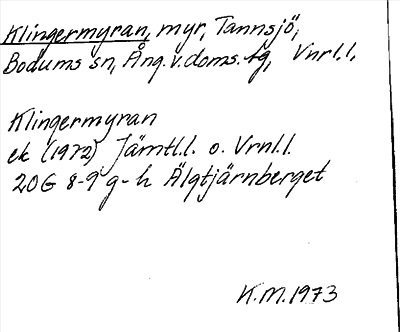 Klingermyran, myr, Tannsjö,
Bodums sn, Ång. v. doms. fg, Vnrl.l.
Klingermyran
ek (1972) Jämtl.l. o. Vrnl.l.
20G 8-9 g-h Älgtjärnberget
K.M. 1973